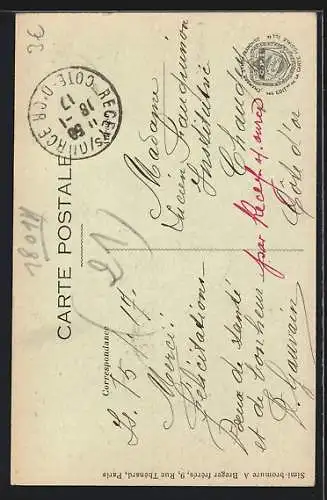 CARTE POSTALE
Correspondance
Le 15/1/17.
Merci!
félicitations
Vœux de santé
et de bonheur
D. Gauvain
Madame
Lucien
Institutrice
par Recey s/ource
Côte d'or
RECEY S/OURCE
COTE-D'OR
18 -1
17
Simi-bromure A. Breger frères, 9, Rue Thénard, Paris
3€
(21)